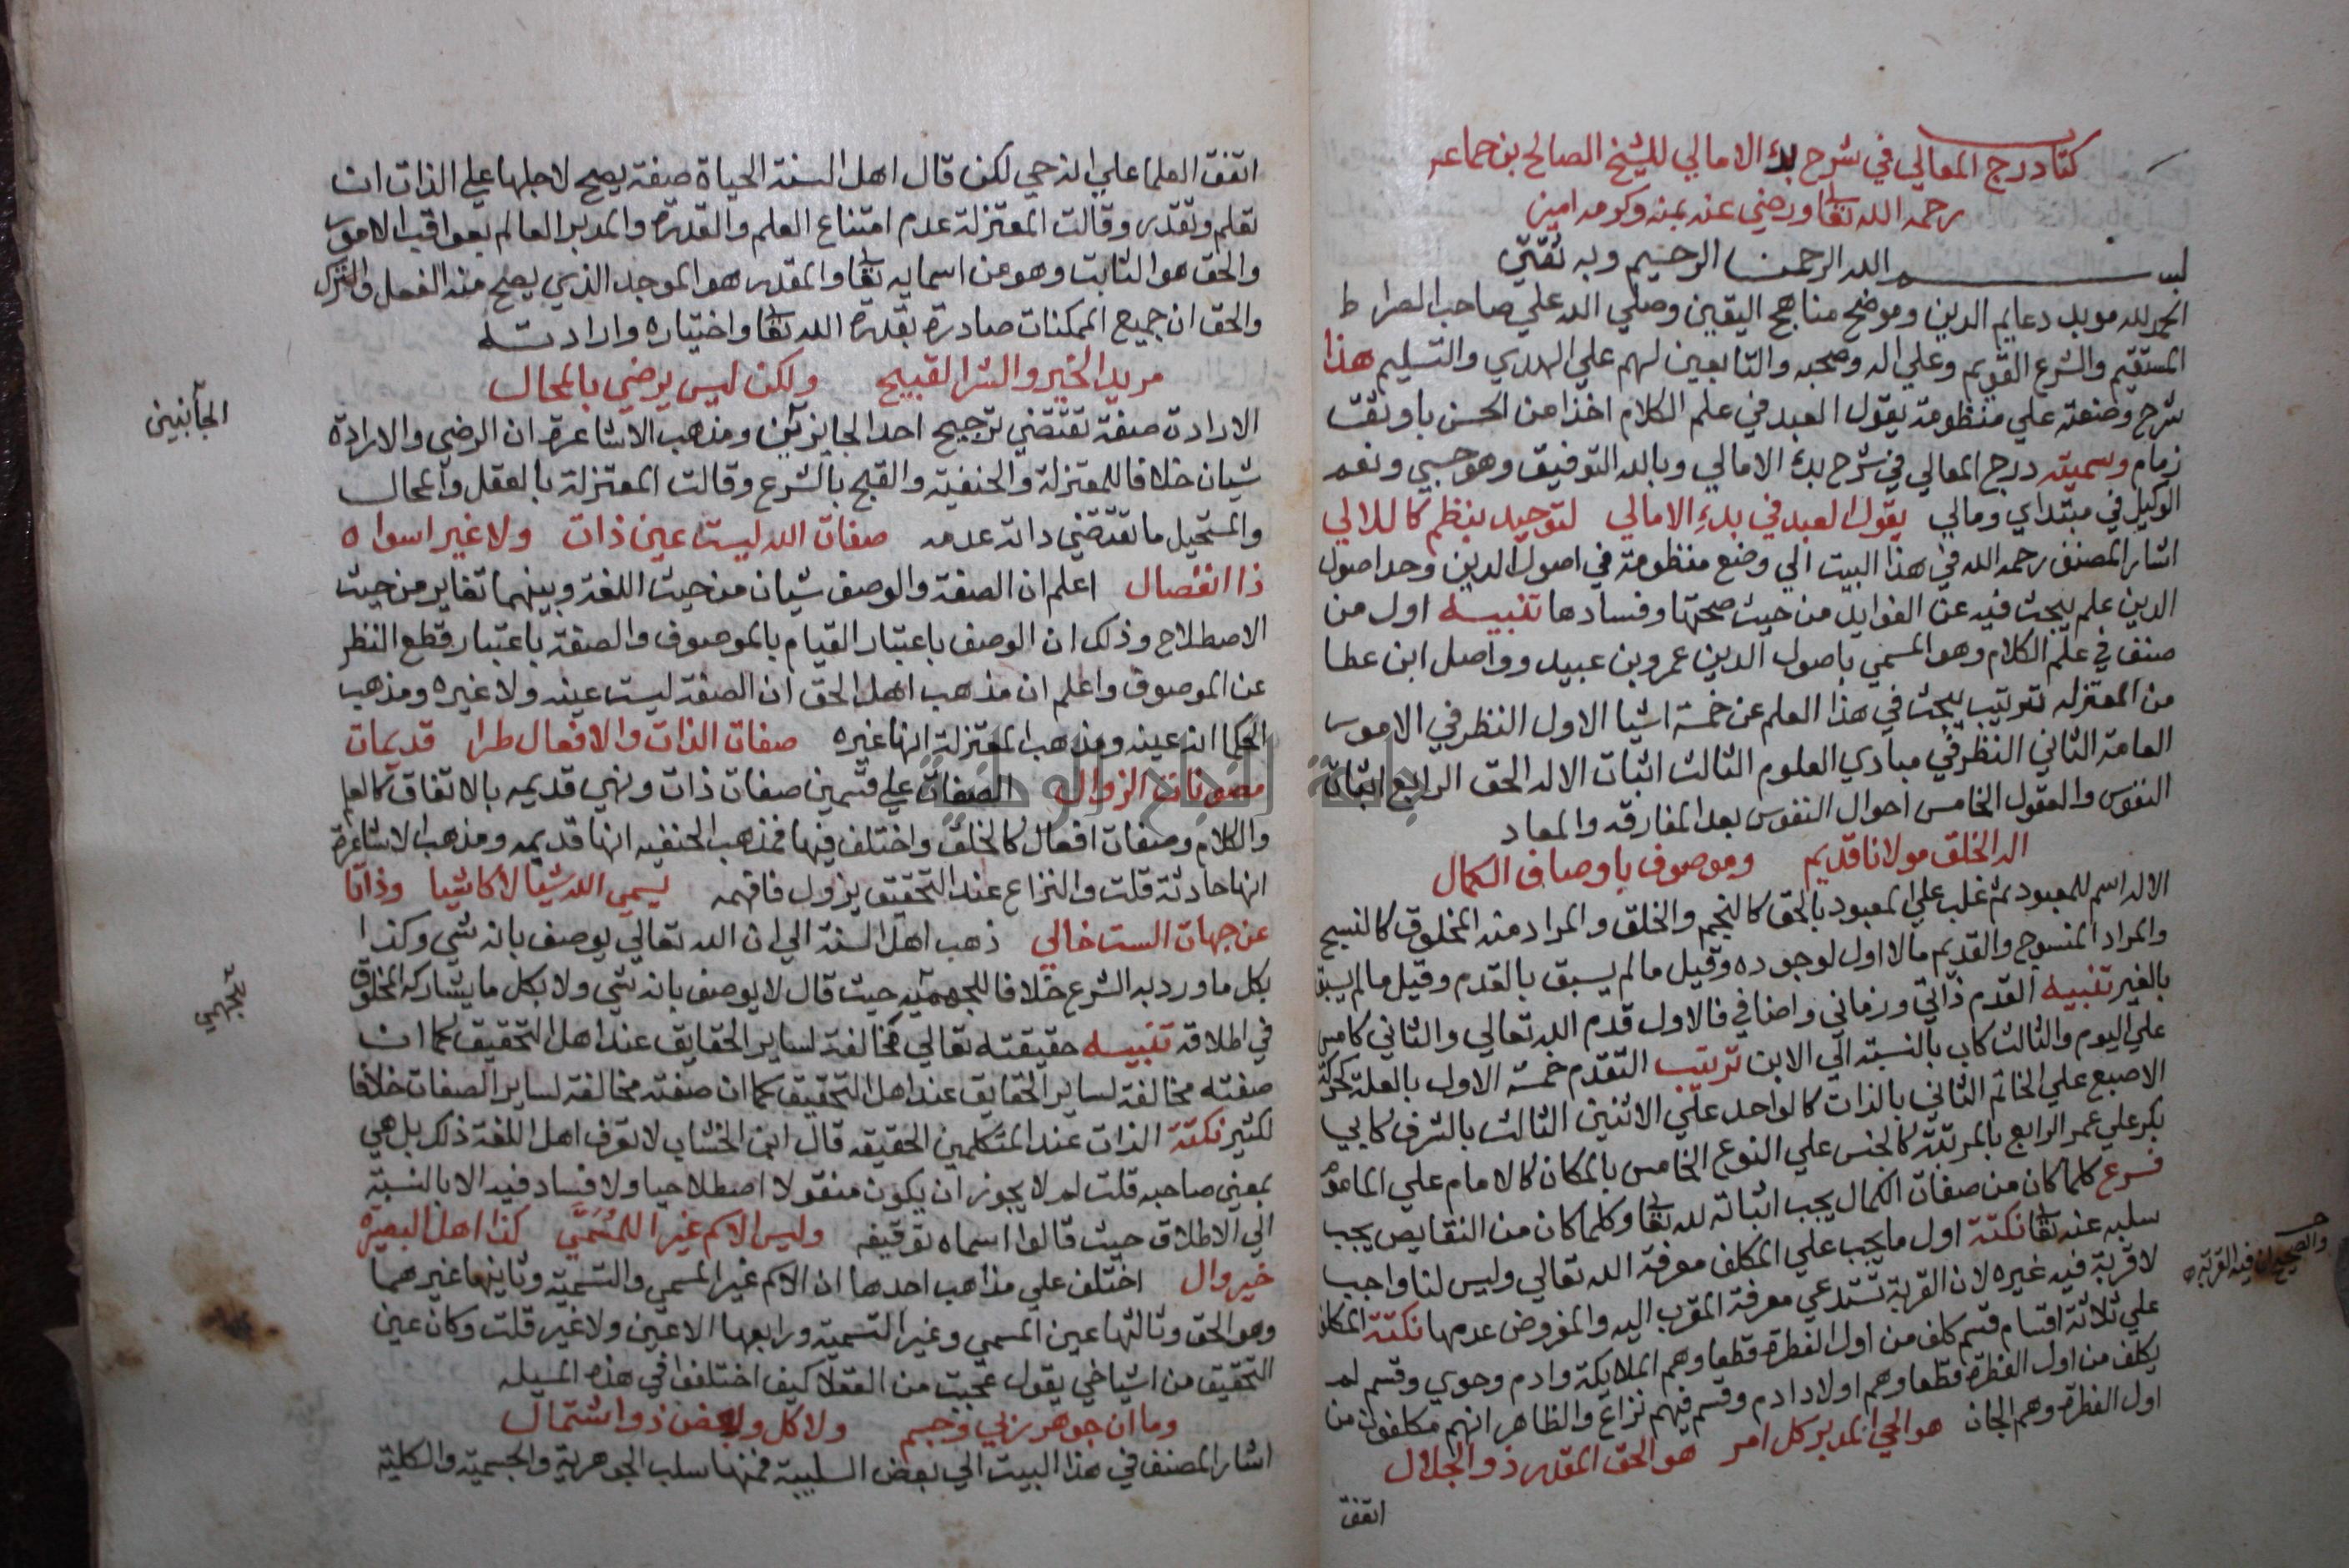 كتاب درج المعالي في شرح بدء الامالي للشيخ الصالح بن جماعه
رحمه الله تعا ورضي عنه بمنه وكرمه امين
بسم الله الرحمن الرحيم وبه ثقتي
الحمد لله مويد دعايم الدين وموضح مناهج اليقين وصلي الله علي صاحب الصراط
المستقيم والشرع القويم وعلي اله وصحبه والتابعين لهم علي الهدي والتسليم هذا
شرح وضعته علي منظومة يقول العبد في علم الكلام اخذا من الحسن باوثقت
زمام وسميته درج المعالي في شرح بدء الامالي وبالله التوفيق وهو حسبي ونعم
الوكيل في مبتداي ومالي يقول العبد في بدء الامالي لتوحيد بنظم كاللالي
اشار المصنف رحمه الله في هذا البيت الي وضع منظومة في اصول الدين وحد اصول
الدين علم يبحث فيه عن الفوايد من حيث صحتها وفسادها تنبيه اول من
صنف في علم الكلام وهو المسمي باصول الدين عمرو بن عبيد وواصل ابن عطا
من المعتزله ترتيب يبحث في هذا العلم عن خمسة اشيا الاول النظر في الامور
العامة الثاني النظر في مبادي العلوم الثالث اثبات الاله الحق الرابع اثبات
النفوس والعقول الخامس احوال النفوس بعد المفارقه والمعاد
اله الخلق مولانا قديم وموصوف باوصاف الكمال
الاله اسم للمعبود ثم غلب علي المعبود بالحق كالنجم والخلق والمراد منه المخلوق كالنسيج
والمراد المنسوج والقديم ما لا اول لوجوده وقيل ما لم يسبق بالقدم وقيل ما لم يسبق
بالغير تنبيه القدم ذاتي وزماني واضافي فالاول قدم الله تعالي والثاني كامس
علي اليوم والثالث كاب بالنسبة الي الابن ترتيب التقدم خمسة الاول بالعلة كحركة
الاصبع علي الخاتم الثاني بالذات كالواحد علي الاثنين الثالث بالشرف كابي
بكر علي عمر الرابع بالمرتبة كالجنس علي النوع الخامس بالمكان كالامام علي الماموم
فرع كلما كان من صفات الكمال يجب اثباته لله تعا وكلما كان من النقايص يجب
سلبه عنه تعا نكتة اول ما يجب علي المكلف معرفة الله تعالي وليس لنا واجب
لا قربة فيه غيره لان القربة تستدعي معرفة المقرب اليه والمفروض عدمها نكتة المكلف
علي ثلاثة اقسام قسم كلف من اول الفطرة قطعا وهم الملايكة وادم وحوي وقسم لم
يكلف من اول الفطرة قطعا وهم اولاد ادم وقسم فيهم نزاع والظاهر انهم مكلفون من
اول الفطرة وهم الجان هو الحي المدبر كل امر هو الحق المقدر ذو الجلال
اتفق
والصحيح ان فيه القربة
اتفق العلما علي انه حي لكن قال اهل السنة الحياة صفة يصح لاجلها علي الذات ان
تعلم وتقدر وقالت المعتزلة عدم امتناع العلم والقدرة والمدبر العالم بعواقب الامور
والحق هو الثابت وهو من اسمايه تعا والمقدر هو الموجد الذي يصح منه الفعل والترك
والحق ان جميع الممكنات صادرة بقدرة الله تعا واختياره وارادته
مريد الخير والشر القبيح ولكن ليس يرضي بالمحال
الارادة صفة تقتضي ترجيح احد الجايزين ومذهب الاشاعرة ان الرضي والارادة
شيان خلافا للمعتزلة والحنفية والقبح بالشرع وقالت المعتزلة بالعقل والمحال
والمستحيل ما تقتضي ذاته عدمه صفات الله ليست عين ذات ولا غير اسواه
ذا انفصال اعلم ان الصفة والوصف شيان من حيث اللغة وبينهما تغاير من حيث
الاصطلاح وذلك ان الوصف باعتبار القيام بالموصوف والصفة باعتبار قطع النظر
عن الموصوف واعلم ان مذهب اهل الحق ان الصفة ليست عينه ولا غيره ومذهب
الحكما انه عينه ومذهب المعتزلة انها غيره صفات الذات والافعال طرا قديمات
مصونات الزوال الصفات علي قسمين صفات ذات ونهي قديمه بالاتفاق كالعلم
والكلام وصفات افعال كالخلق واختلف فيها فمذهب الحنفيه انها قديمه ومذهب الاشاعرة
انها حادثة قلت والنزاع عند التحقيق يزول فافهمه يسمي الله شيا لا كاشيا وذاتا
عن جهات الست خالي ذهب اهل السنة الي ان الله تعالي يوصف بانه شي وكذا
بكل ما ورد به الشرع خلافا للجهمية حيث قال لا يوصف بانه شي ولا بكل ما يشاركه المخلوق
في اطلاقه تنبيه حقيقته تعالي مخالفة لساير الحقايق عند اهل التحقيق كما ان
صفته مخالفة لساير الحقايق عند اهل التحقيق كما ان صفته مخالفة لساير الصفات خلافا
لكثير نكتة الذات عند المتكلمين الحقيقه قال ابن الخشاب لا تعرف اهل اللغة ذلك بل هي
بمعني صاحبه قلت لم لا يجوز ان يكون منقولا اصطلاحيا ولا فساد فيه الا بالنسبة
الي الاطلاق حيث قالوا اسماه توقيفه وليس الاسم غير اللمسمي كذا اهل البصيرة
خير وال اختلف علي مذاهب احدها ان الاسم غير المسمي والتسمية وثانيها غيرهما
وهو الحق وثالثها عين المسمي وغير التسمية ورابعها الاعين ولا غير قلت وكان عين
التحقيق من اشياخي يقول عجبت من العقلا كيف اختلفوا في هذه المسيله
وما ان جوهر ربي وجسم ولا كل وبعض ذو اشتمال
اشار المصنف في هذا البيت الي بعض السلبية فمنها سلب الجوهرية والجسمية والكلية
الجانبين
جامعة النجاح الوطنية